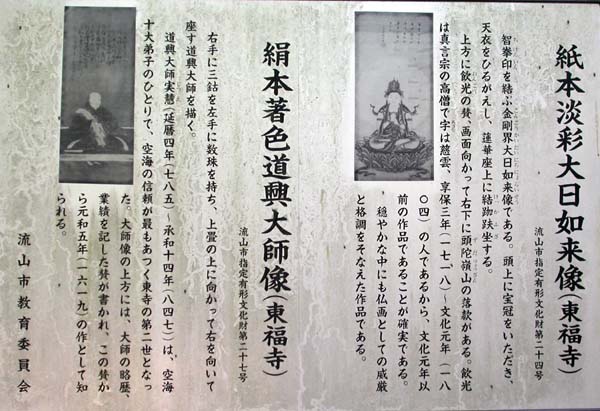 紙本淡彩大日如来像(東福寺)
流山市指定有形文化財第二十四号
智拳印を結ぶ金剛界大日如来像である。頭上に宝冠をいただき、
天衣をひるがえし、蓮華座上に結跏趺坐する。
上方に飲光の賛、画面向かって右下に頭陀嶺山の落款がある。飲光
は真言宗の高僧で字は慈雲、享保三年(一七一八)～文化元年(一八
〇四)の人であるから、文化元年以
前の作品であることが確実である。
穏やかな中にも仏画としての威厳
と格調をそなえた作品である。
絹本著色道興大師像(東福寺)
流山市指定有形文化財第二十七号
右手に三鈷を左手に数珠を持ち、上畳の上に向かって右を向いて
座す道興大師を描く。
道興大師実慧(延暦四年(七八五)～承和十四年(八四七)は、空海
十大弟子のひとりで、空海の信頼が最もあつく東寺の第二世となっ
た。大師像の上方には、大師の略歴、
業績を記した賛が書かれ、この賛か
ら元和五年(一六一九)の作として知
られる。
流山市教育委員会